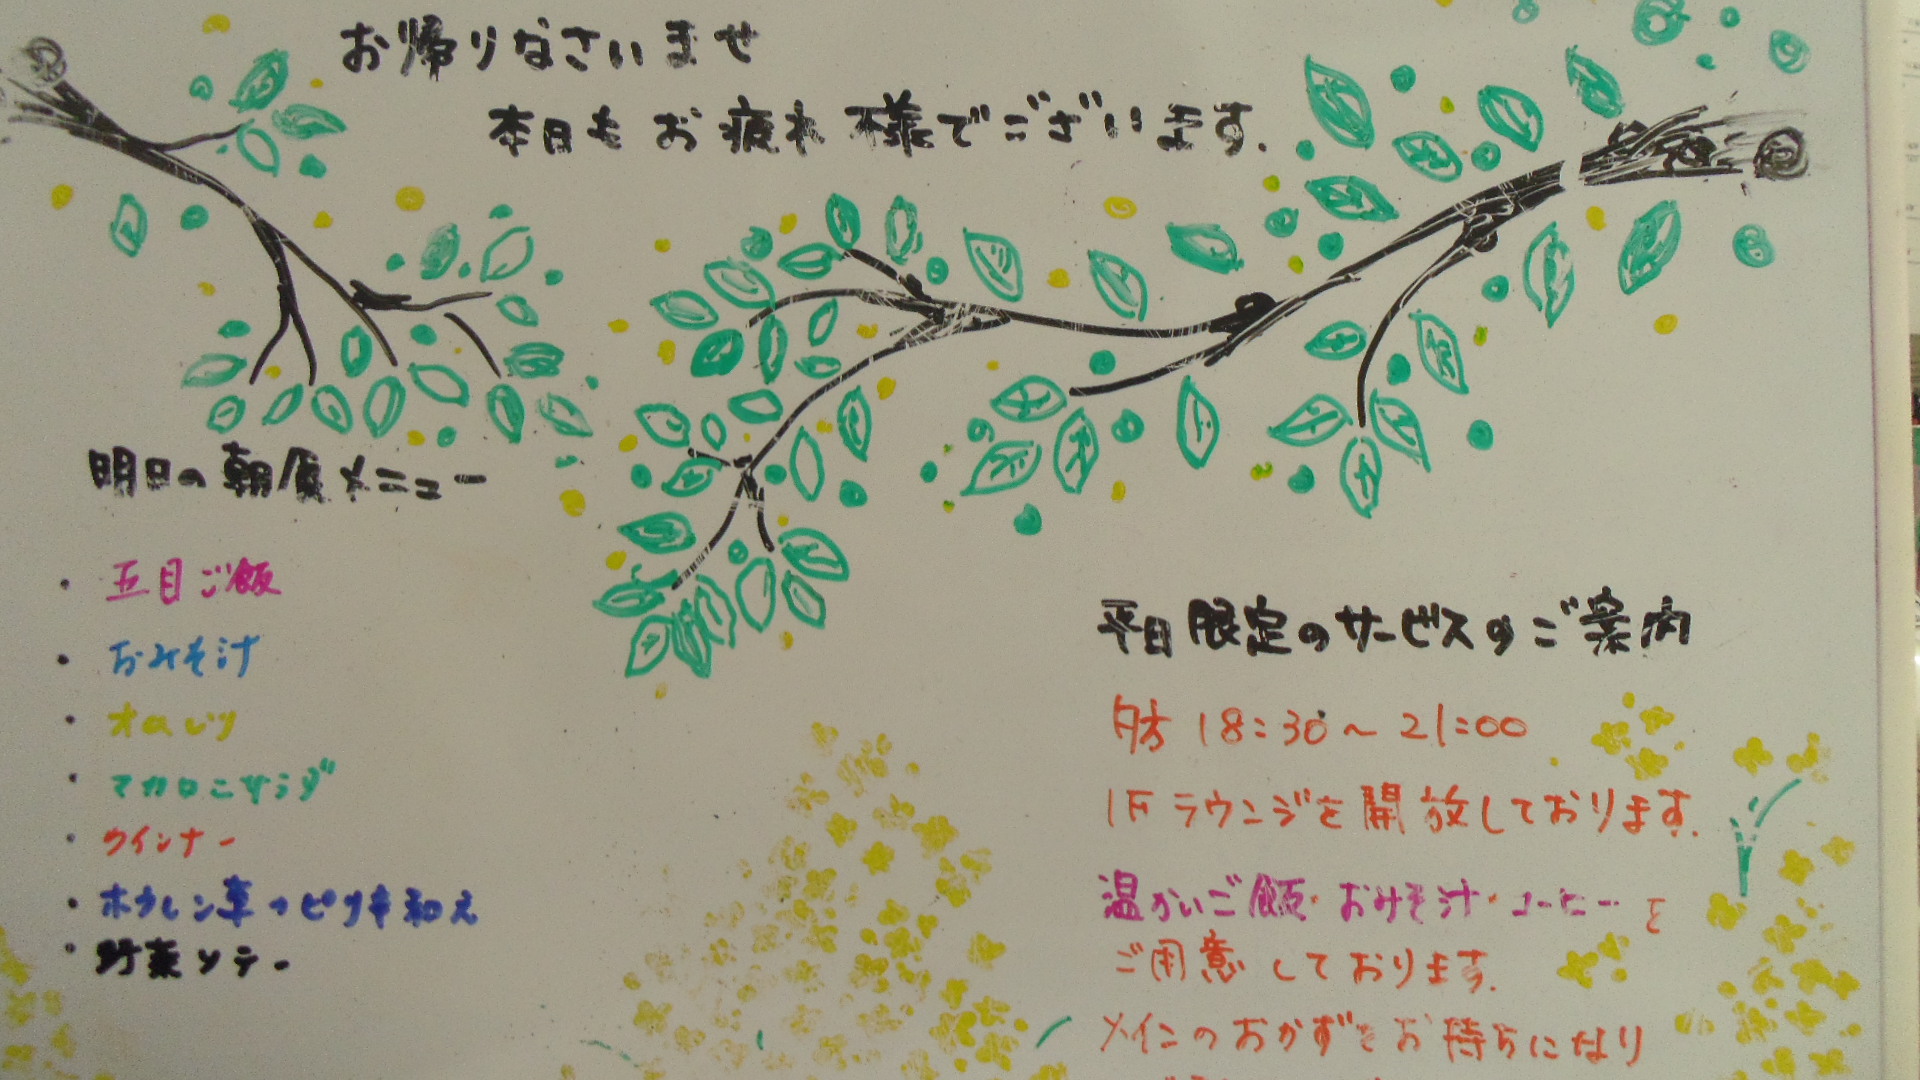 お帰りなさいませ
本日もお疲れ様でございます.
明日の朝食メニュー
・五目ご飯
・おみそ汁
・オムレツ
・マカロニサラダ
・ウインナー
・ホウレン草のピリ辛和え
・野菜ソテー
平日限定のサービスのご案内
夕方 18:30～21:00
1Fラウンジを開放しております.
温かいご飯・おみそ汁・コーヒーを
ご用意しております.
メインのおかずをお持ちになり